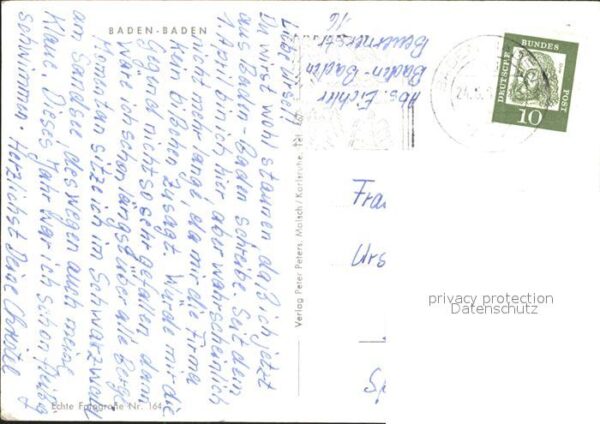 BADEN-BADEN
Abs. Eichler
Baden-Baden
16
Liebe Ursel!
Du wirst wohl staunen daß ich jetzt
aus Baden-Baden schreibe. Seit dem
1. April bin ich hier aber wahrscheinlich
nicht mehr lange, da mir die Firma
kein bißchen zusagt. Würde mir die
Gegend nicht so sehr gefallen, dann
wäre ich schon längst über alle Berge.
Momentan sitze ich im Schwarzwald
am Sandsee, deswegen auch meine
Klaue. Dieses Jahr war ich schon fleißig
schwimmen. Herzlichst Deine Christel
Verlag Peter Peters, Malsch/Karlsruhe, Tel.
Echte Fotografie Nr. 164
DEUTSCHE BUNDESPOST
10
Frau
Urs
privacy protection
Datenschutz